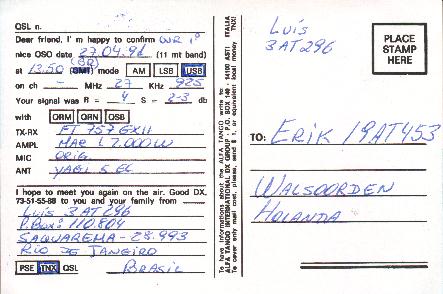 QSL n.
Dear friend, I'm happy to confirm OUR 1º
nice QSO DATE 27.04.91 (11 mt band)
(BR)
at 13:50 (GMT) mode AM LSB USB
on ch - MHz 27 KHz 925
Your signal was R = 4 S = 2-3 db
with QRM QRN QSB
TX-RX FT 757 GXII
AMPL
MIC ORIG
ANT YAGI 5 EL
I hope to meet you again on the air. Good DX,
73-51-55-88 to you and your family from
LUIS 3AT296
P.BOX: 110.804
SAQUAREMA - 28.993
RIO DE JANEIRO
PSE TNX QSL BRASIL
To have informations about the ALFA TANGO write to
ALFA TANGO INTERNATIONAL DX GROUP - P.O. BOX 140 - 14100 ASTI ITALIA
To cover only mail cost, please, send $ 1, or equivalent local money TNX!
Luis
3AT296
PLACE
STAMP
HERE
TO: ERIK 19AT453
WALSOORDEN
HOLANDA